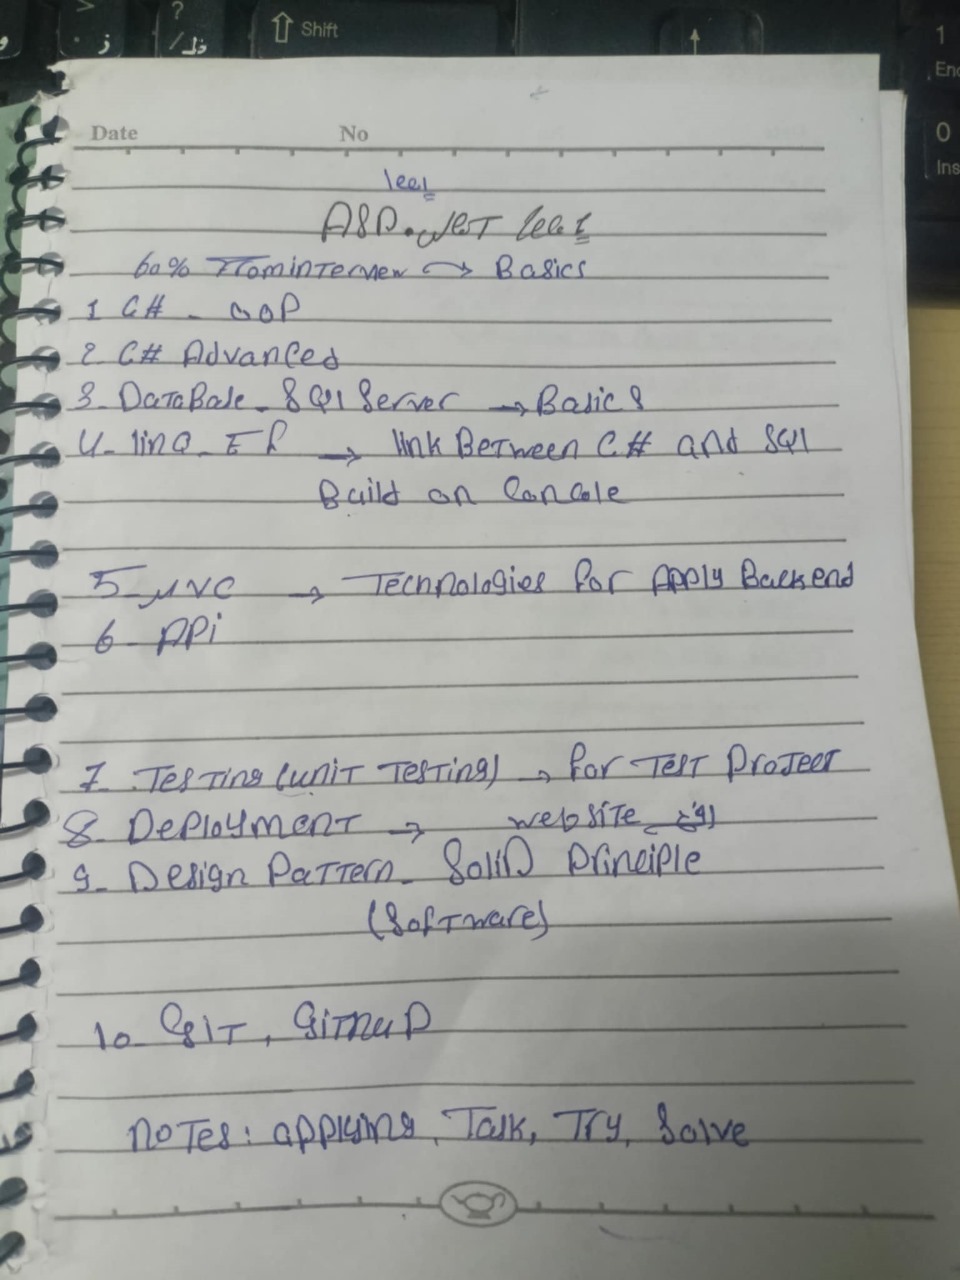 Shift
1
End
0
Ins
Date No
lec1
ASP.NET lec1
60% From interview → Basics
1 C# - OOP
2. C# Advanced
3- DataBase - SQl Server → Basics
4- linQ - EF → link Between C# and SQl
Build on Console
5- MVC → Technologies for Apply Backend
6- APi
7. Testing (unit testing) → for Test Project
8- Deployment → website رفع
9- Design Pattern - Solid Principle
(Software)
10- GIT, GitHub
notes: applying, Talk, Try, Solve